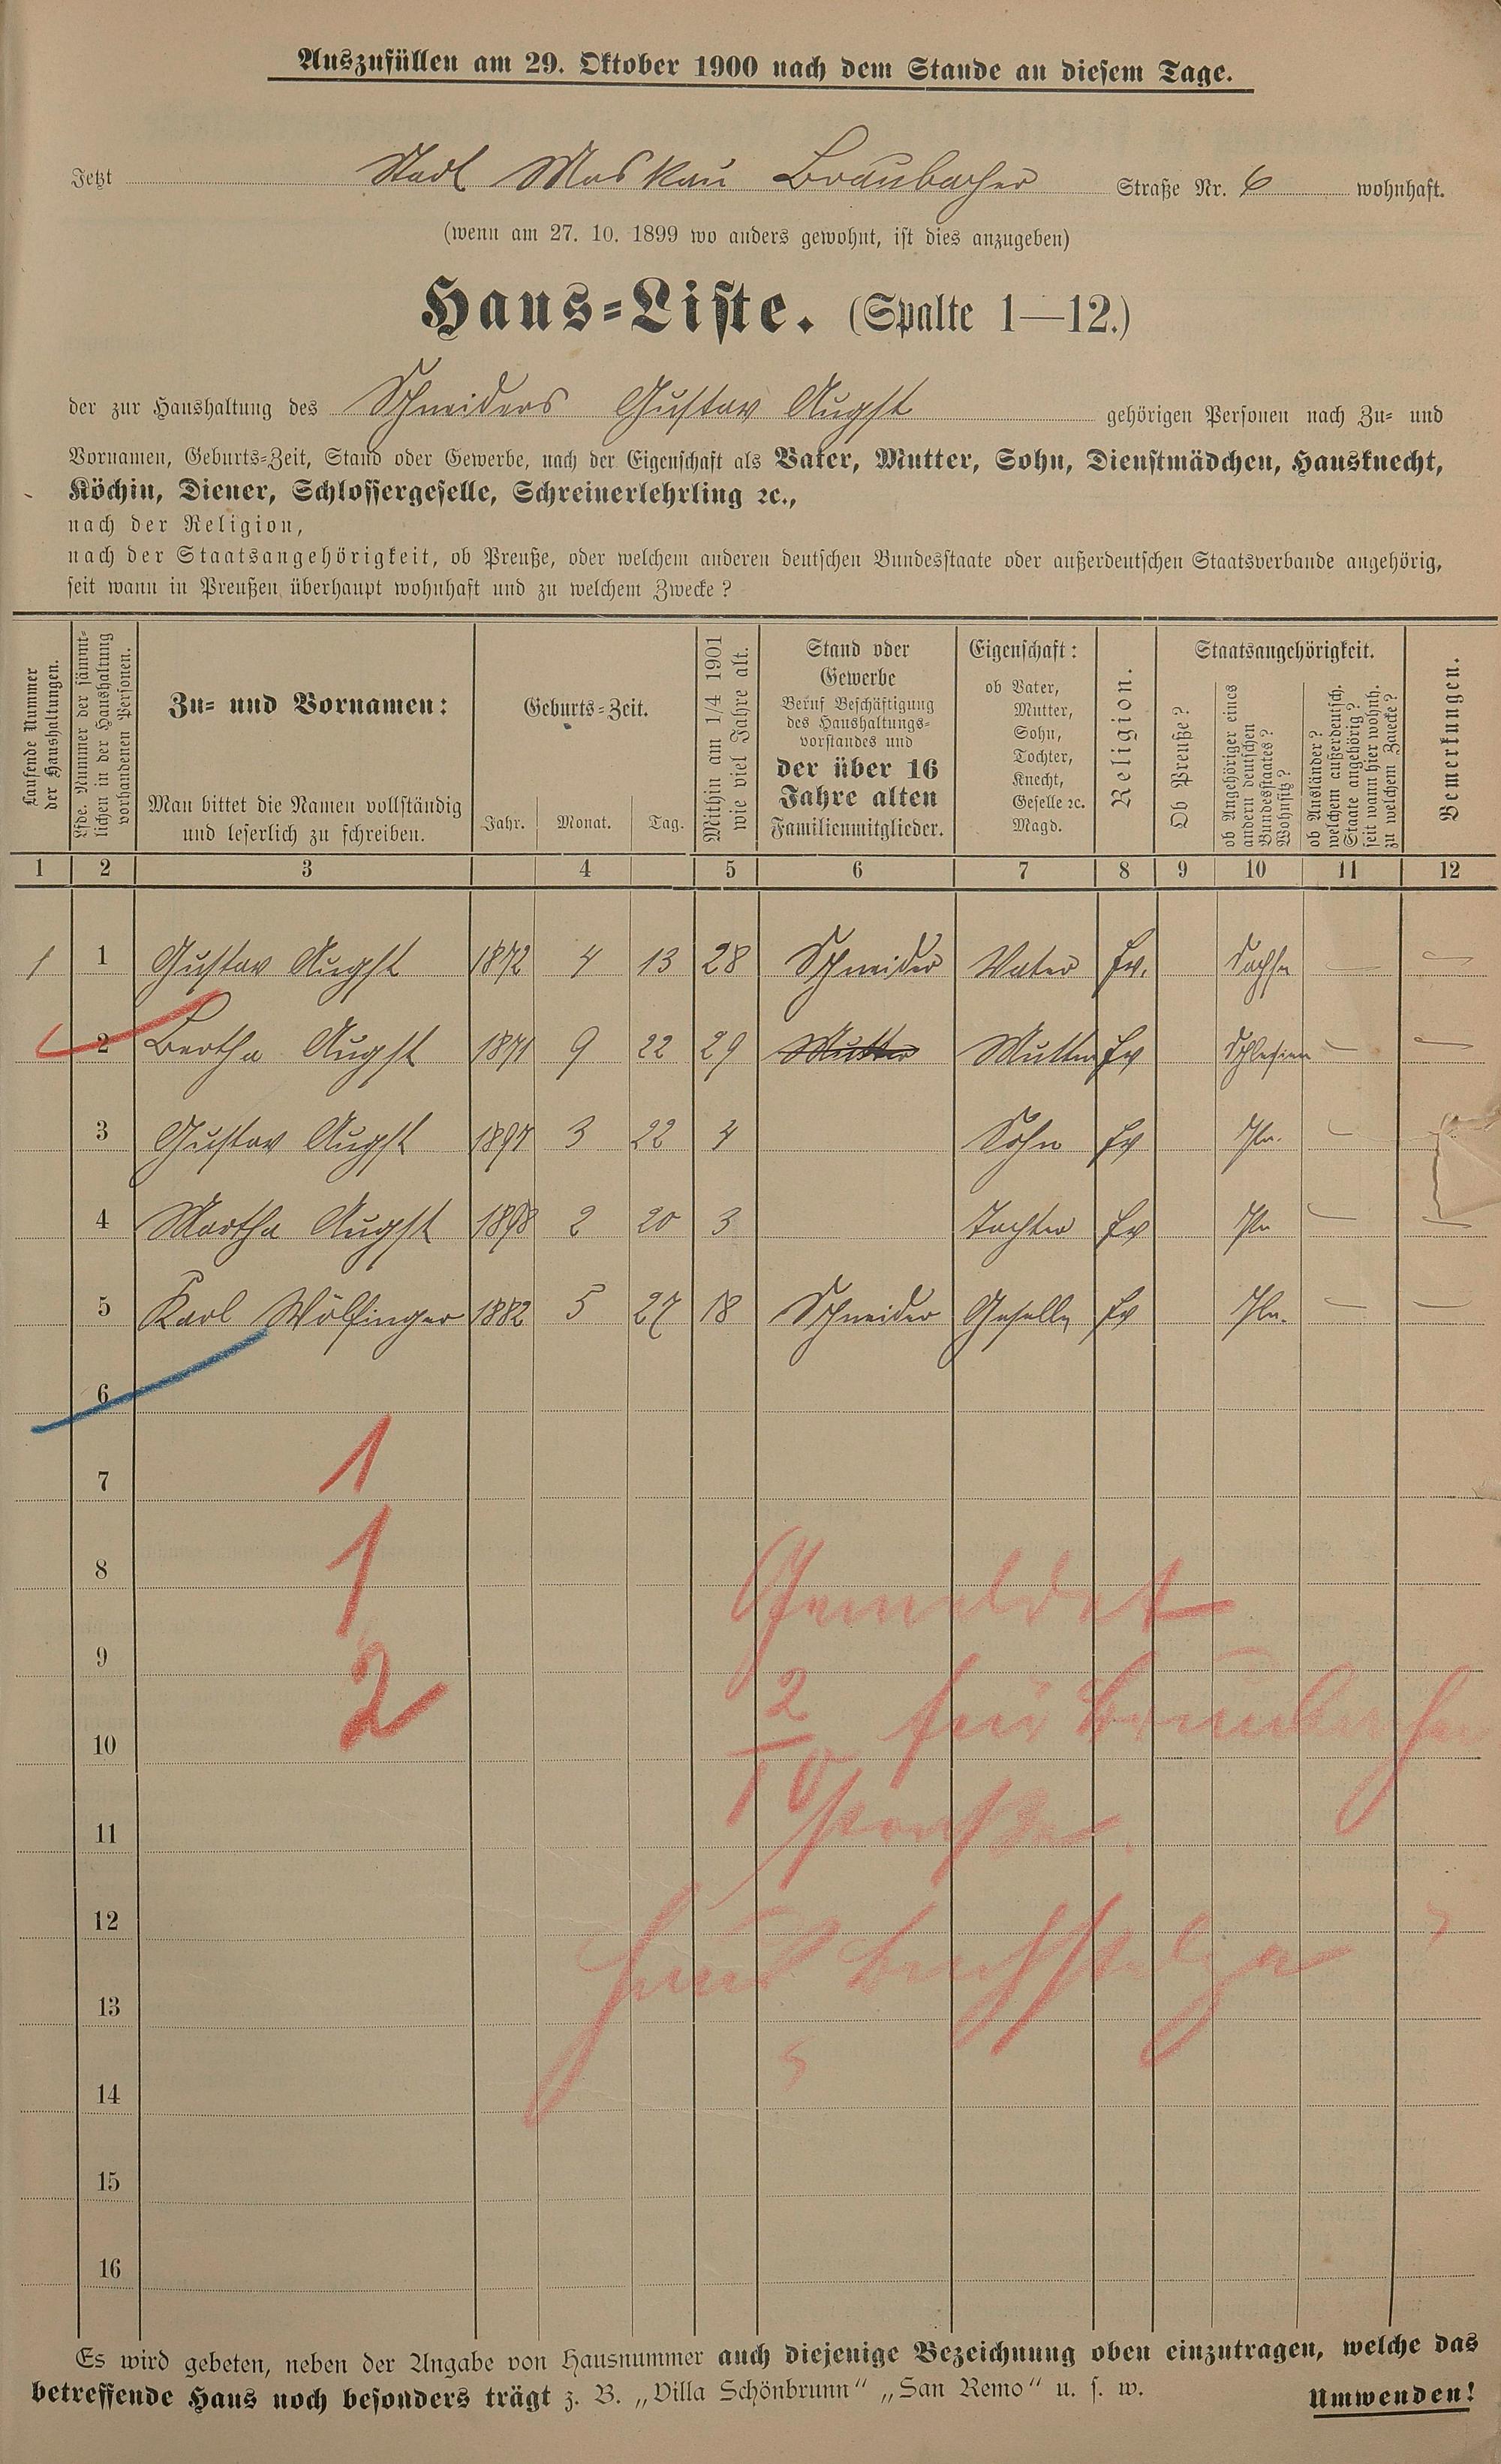 Auszufüllen am 29. Oktober 1900 nach dem Stande an diesem Tage.
Jetzt Stadt Moskau Braubacher Straße Nr. 6 wohnhaft.
(wenn am 27. 10. 1899 wo anders gewohnt, ist dies anzugeben)
Haus-Liste. (Spalte 1—12.)
der zur Haushaltung des Schneiders Gustav Augst gehörigen Personen nach Zu- und
Vornamen, Geburts-Zeit, Stand oder Gewerbe, nach der Eigenschaft als Vater, Mutter, Sohn, Dienstmädchen, Hausknecht,
Köchin, Diener, Schlossergeselle, Schreinerlehrling ꝛc.,
nach der Religion,
nach der Staatsangehörigkeit, ob Preuße, oder welchem anderen deutschen Bundesstaate oder außerdeutschen Staatsverbande angehörig,
seit wann in Preußen überhaupt wohnhaft und zu welchem Zwecke?
Laufende Nummer
der Haushaltungen.
Lfde. Nummer der sämmt-
lichen in der Haushaltung
vorhandenen Personen.
Zu- und Vornamen:
Man bittet die Namen vollständig
und leserlich zu schreiben.
Geburts-Zeit.
Jahr. Monat. Tag.
Mithin am 1/4 1901
wie viel Jahre alt.
Stand oder
Gewerbe
Beruf Beschäftigung
des Haushaltungs-
vorstandes und
der über 16
Jahre alten
Familienmitglieder.
Eigenschaft:
ob Vater,
Mutter,
Sohn,
Tochter,
Knecht,
Geselle ꝛc.
Magd.
Religion.
Staatsangehörigkeit.
Ob Preuße?
ob Angehöriger eines
andern deutschen
Bundesstaates?
Wohnsitz?
ob Ausländer?
welchem außerdeutsch.
Staate angehörig?
seit wann hier wohnh.
zu welchem Zwecke?
Bemerkungen.
1 2 3 4 5 6 7 8 9 10 11 12
1 1 Gustav Augst 1872 4 13 28 Schneider Vater Ev. Sachsen — —
2 Bertha Augst 1871 9 22 29 Mutter Mutter Ev Schlesien — —
3 Gustav Augst 1897 3 22 4 Sohn Ev —
4 Martha Augst 1898 2 20 3 Tochter Ev — —
5 Karl Wölfinger 1882 5 27 18 Schneider Geselle Ev — —
6
7 1
8 1 Gemeldet
9 2
10 2/10 für Braubacher
11 straße.
12
13
14
15
16
Es wird gebeten, neben der Angabe von Hausnummer auch diejenige Bezeichnung oben einzutragen, welche das
betreffende Haus noch besonders trägt z. B. „Villa Schönbrunn“ „San Remo“ u. s. w. Umwenden!